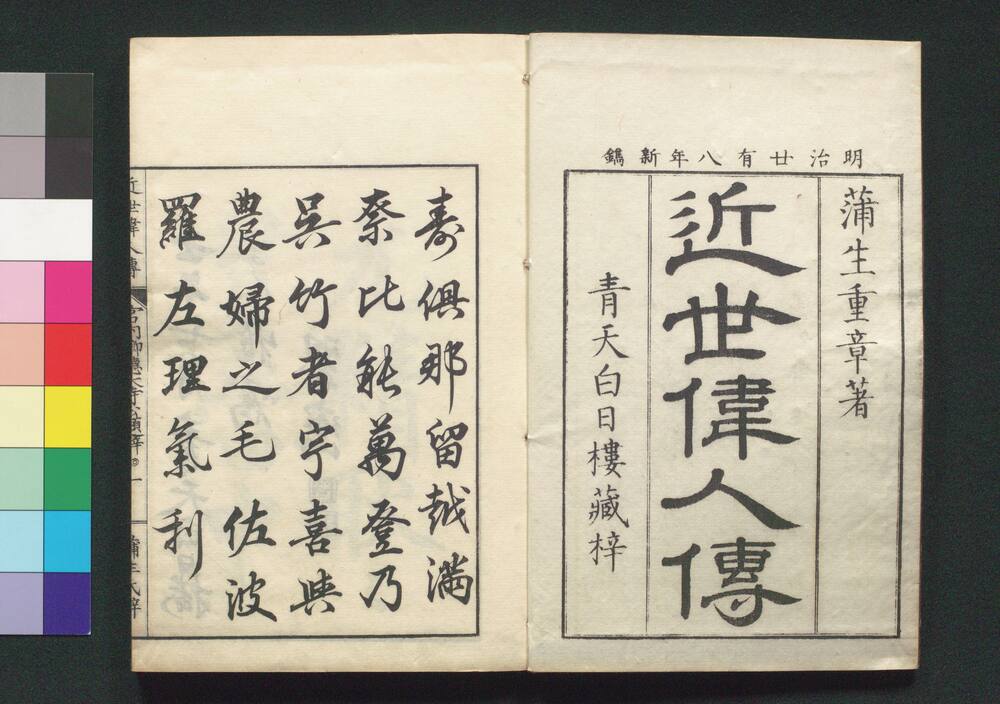 明治廿有八年新鐫
蒲生重章著
近世偉人傳
青天白日樓藏梓
寿俱那留越満
奈比能萬登乃
呉竹者宇喜與
農婦之毛佐波
羅左理氣利
近世偉人傳
蒲生氏梓